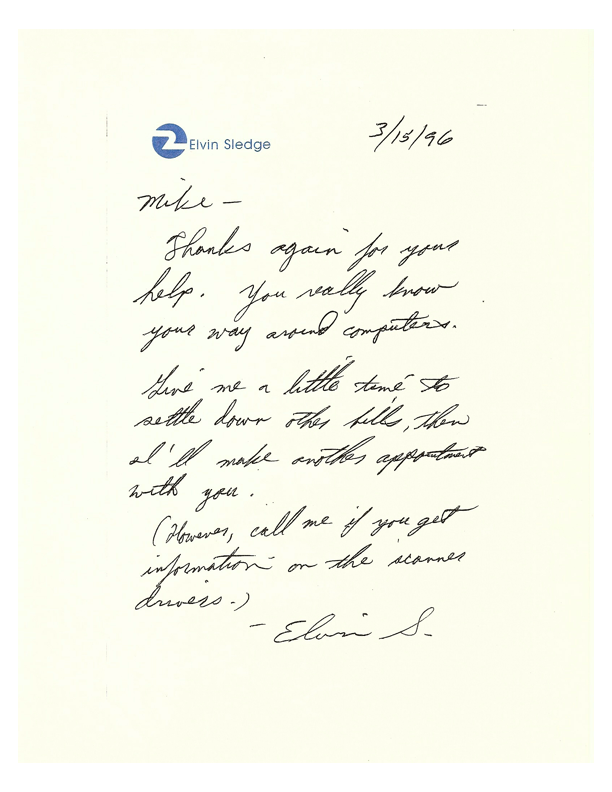 Elvin Sledge
3/15/96
Mike –
Thanks again for your
help. You really know
your way around computers.
Give me a little time to
settle down other bills, then
I'll make another appointment
with you.
(However, call me if you get
information on the scanner
drivers.)
– Elvin S.